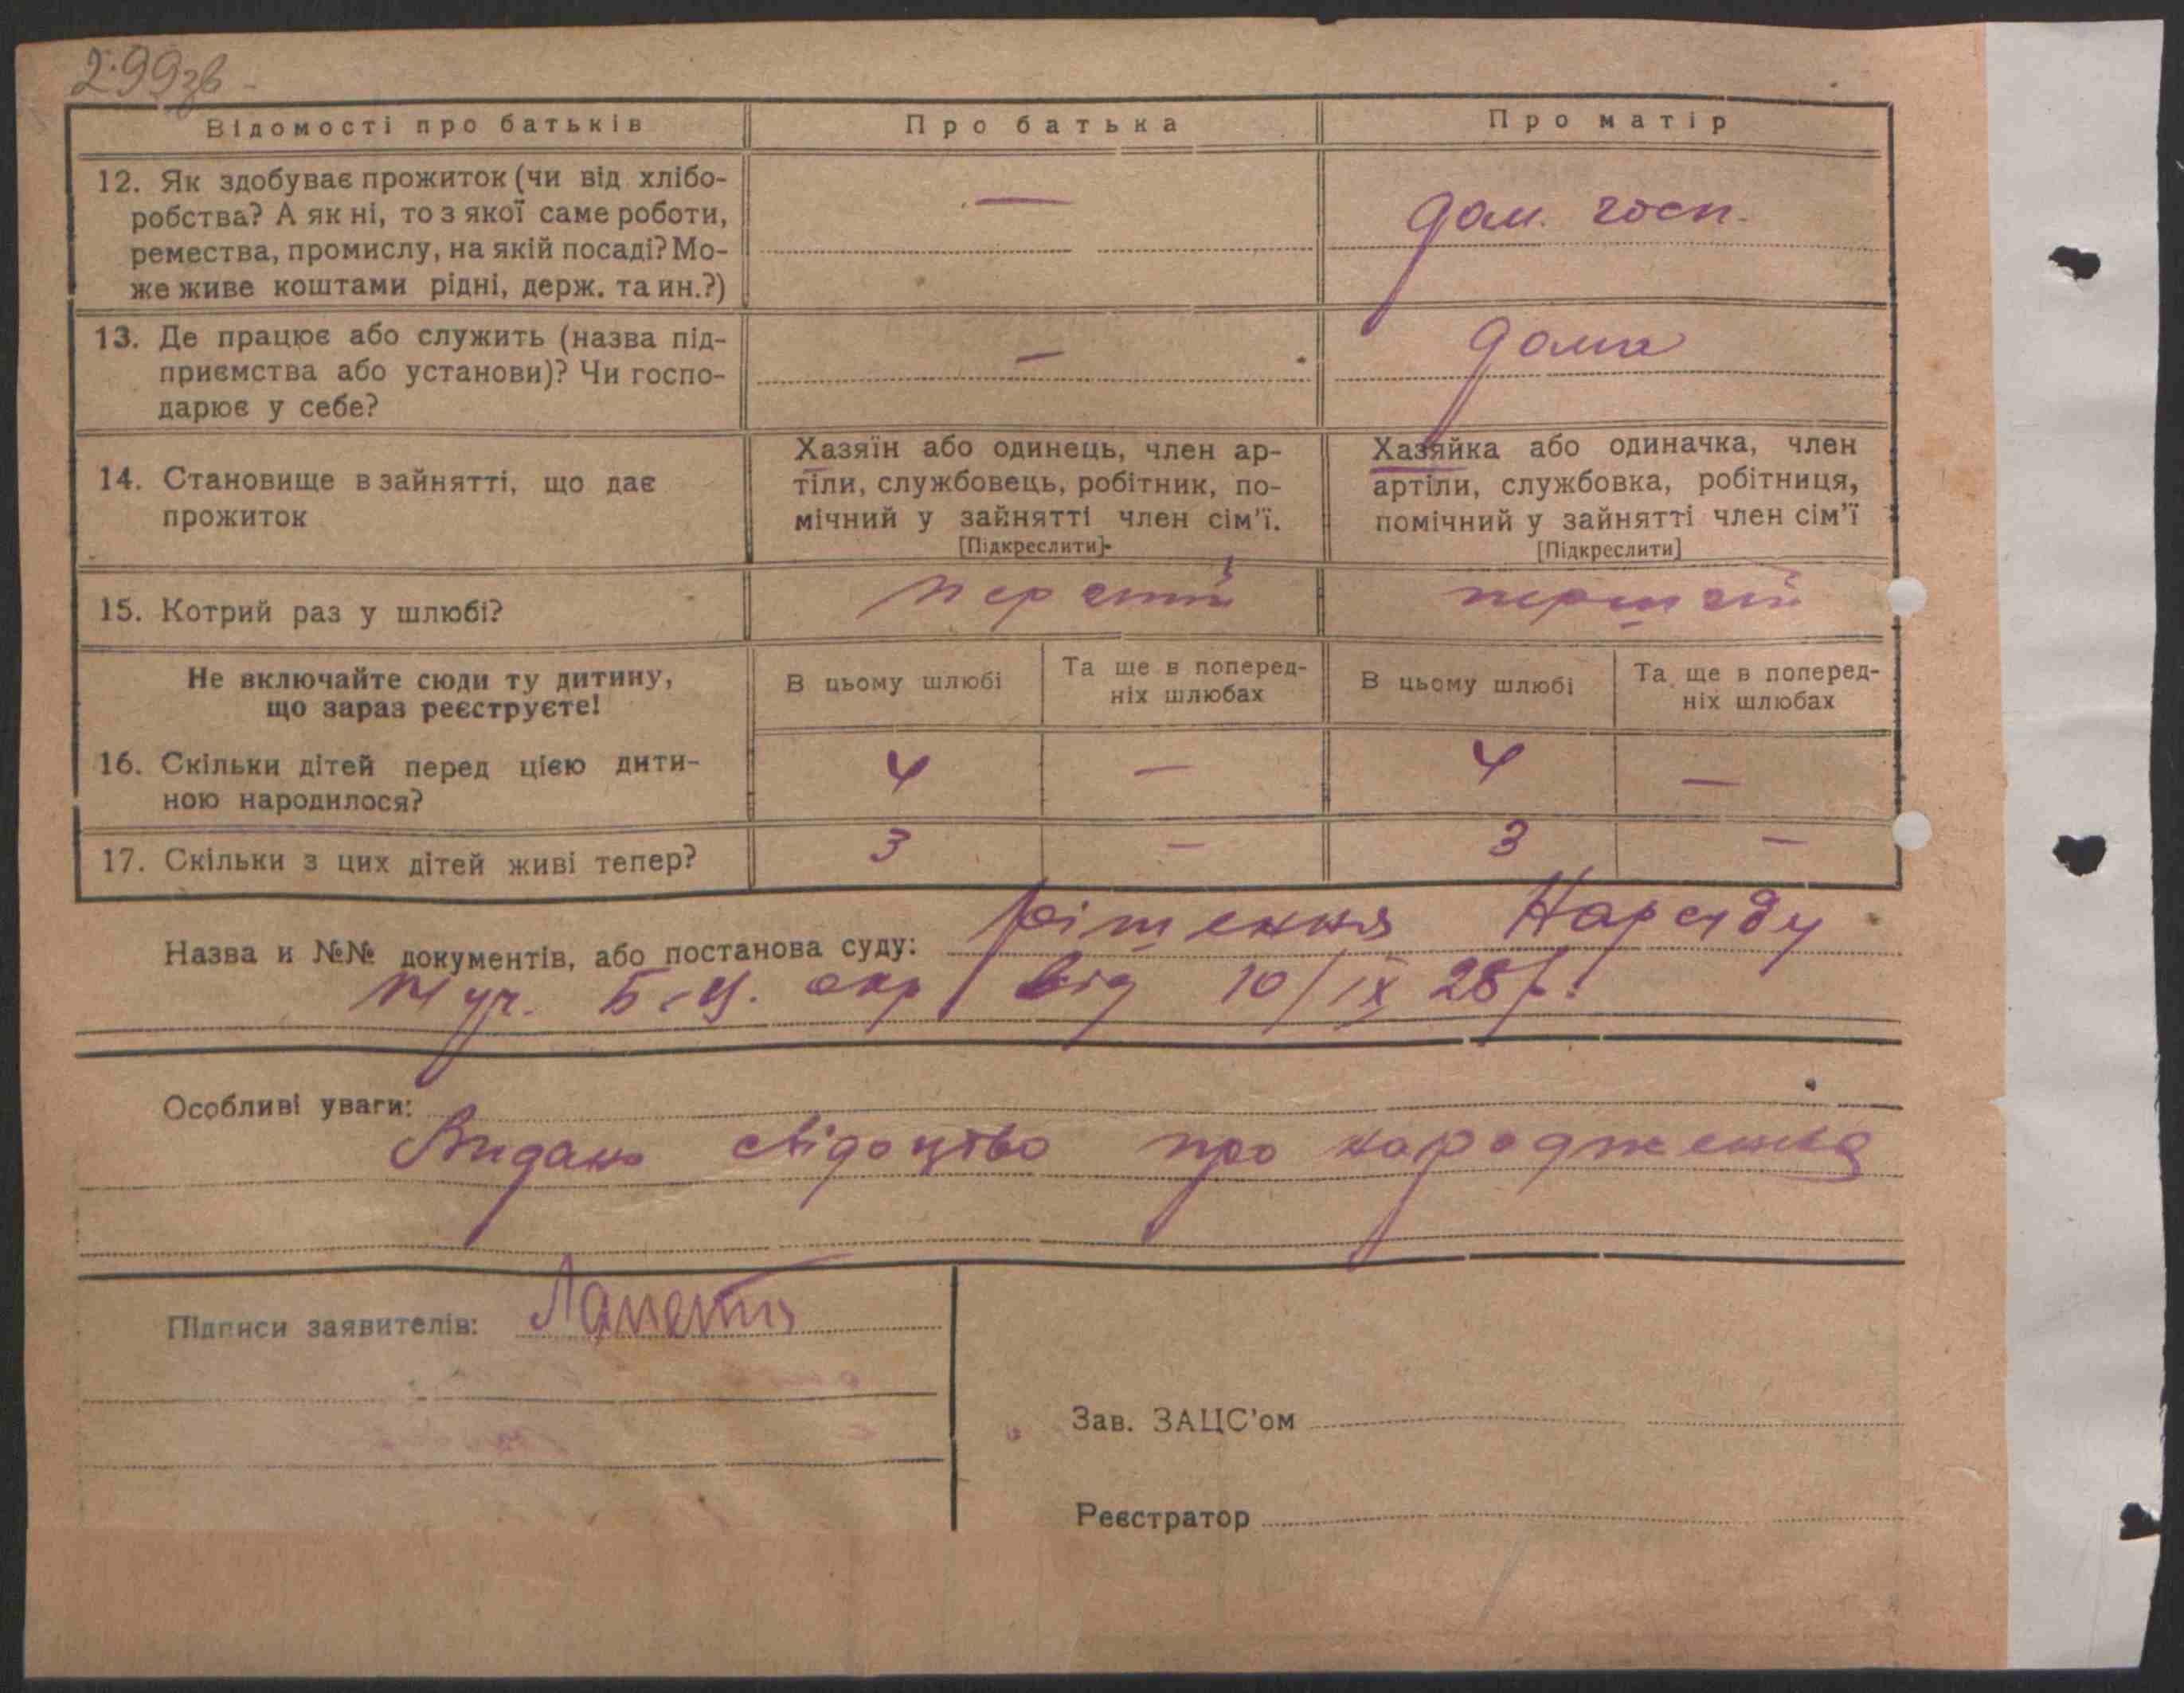 299зв
Відомості про батьків
Про батька
Про матір
12. Як здобуває прожиток (чи від хлібо-
робства? А як ні, то з якої саме роботи,
ремества, промислу, на якій посаді? Мо-
же живе коштами рідні, держ. та ин.?)
—
дом. госп.
13. Де працює або служить (назва під-
приємства або установи)? Чи госпо-
дарює у себе?
—
дома
14. Становище в зайнятті, що дає
прожиток
Хазяїн або одинець, член ар-
тіли, службовець, робітник, по-
мічний у зайнятті член сім'ї.
[Підкреслити]
Хазяйка або одиначка, член
артіли, службовка, робітниця,
помічний у зайнятті член сім'ї
[Підкреслити]
15. Котрий раз у шлюбі?
перший
перший
Не включайте сюди ту дитину,
що зараз реєструєте!
В цьому шлюбі
Та ще в поперед-
ніх шлюбах
В цьому шлюбі
Та ще в поперед-
ніх шлюбах
16. Скільки дітей перед цією дити-
ною народилося?
4 — 4 —
17. Скільки з цих дітей живі тепер?
3 — 3 —
Назва и №№ документів, або постанова суду: рішення Нарсуду
уч. Б-Ц. окр від 10/IX 28 р.
Особливі уваги:
Видано свідоцтво про народження
Підписи заявителів:
Зав. ЗАЦС'ом
Реєстратор